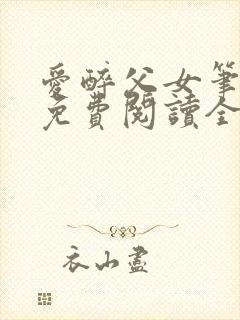 愛醉父女筆
免費閱讀全
衣山盡